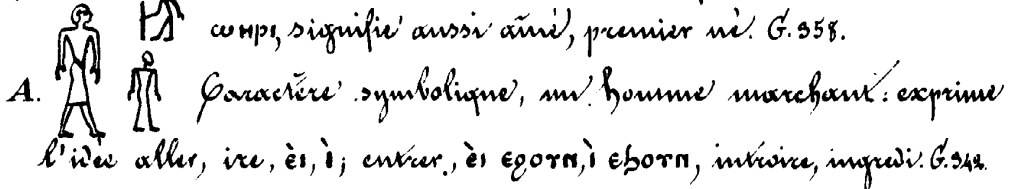 ϣⲏⲣⲓ, signifie aussi aîné, premier né. G. 358.
A. Caractère symbolique, un homme marchant : exprime
l'idée aller, ire, ⲉ̀ⲓ, ⲓ̀; entrer, ⲉ̀ⲓ ⲉϧⲟⲩⲛ, ⲓ̀ ⲉϩⲟⲩⲛ, introire, ingredi. G. 342.